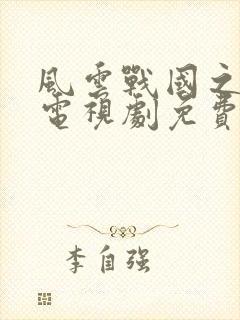 風雲戰國之
電視劇免費
李自強